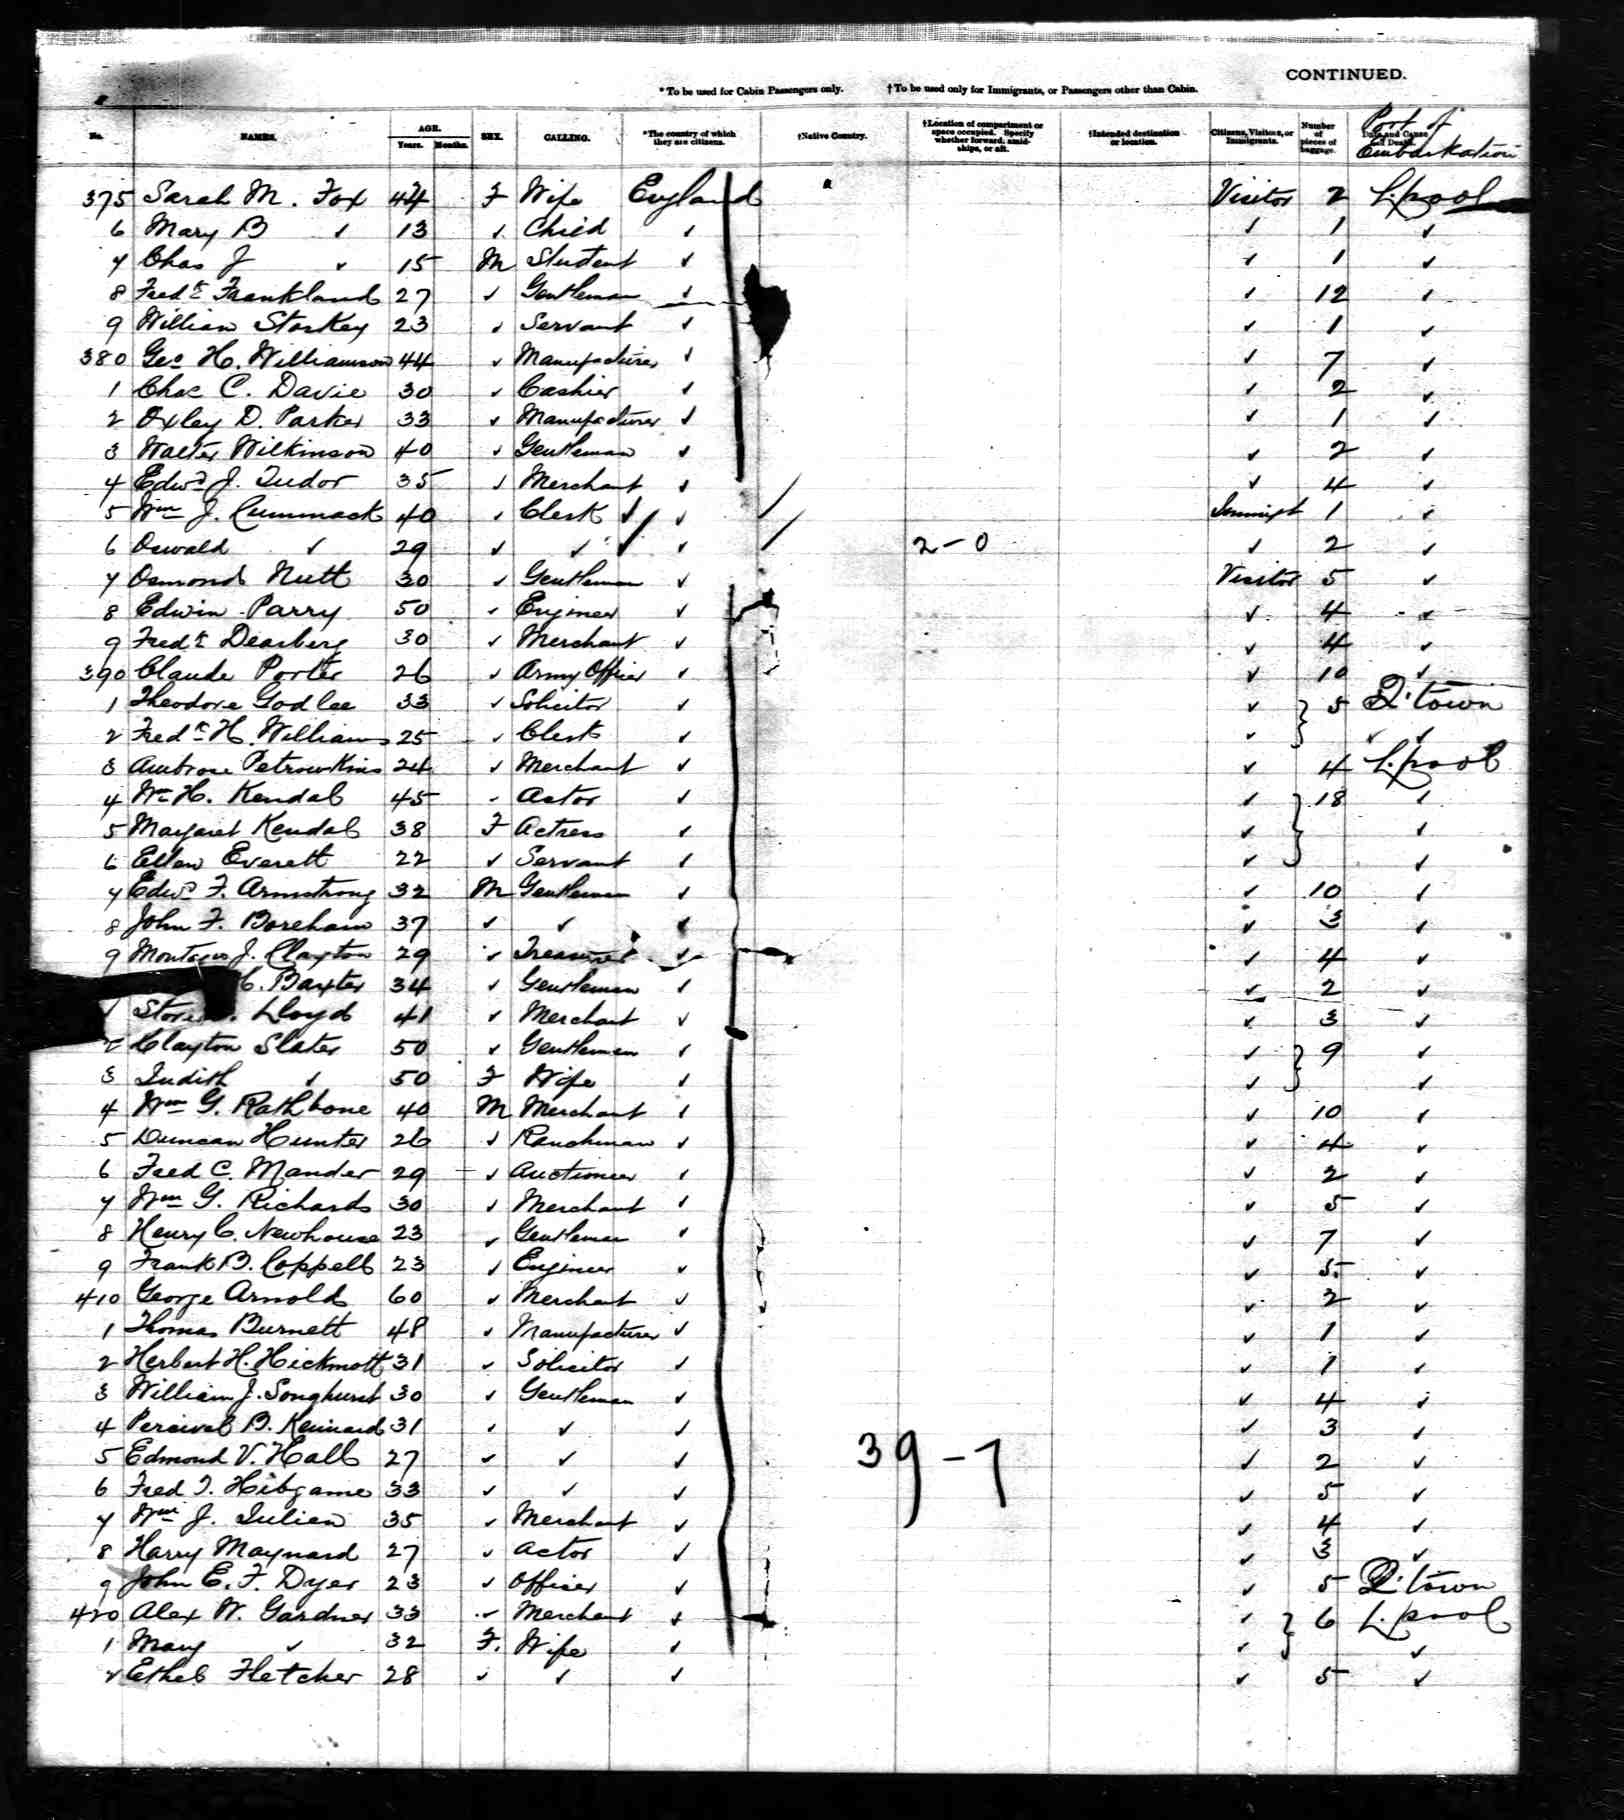 CONTINUED.
* To be used for Cabin Passengers only. † To be used only for Immigrants, or Passengers other than Cabin.
No. NAMES. AGE. Years. Months. SEX. CALLING. *The country of which they are citizens. †Native Country. †Location of compartment or space occupied. Specify whether forward, amidships, or aft. †Intended destination or location. Citizens, Visitors, or Immigrants. Number of pieces of baggage. Port of Embarkation
375 Sarah M. Fox 44 F Wife England Visitor 2 L.pool
6 Mary B ✓ 13 ✓ Child ✓ ✓ 1 ✓
7 Chas J ✓ 15 M Student ✓ ✓ 1 ✓
8 Fredk Frankland 27 ✓ Gentleman ✓ ✓ 12 ✓
9 William Storkey 23 ✓ Servant ✓ ✓ 1 ✓
380 Geo H. Williamson 44 ✓ Manufacturer ✓ ✓ 7 ✓
1 Chas C. Davie 30 ✓ Cashier ✓ ✓ 2 ✓
2 Oxley D. Parker 33 ✓ Manufacturer ✓ ✓ 1 ✓
3 Walter Wilkinson 40 ✓ Gentleman ✓ ✓ 2 ✓
4 Edwd J. Tudor 35 ✓ Merchant ✓ ✓ 4 ✓
5 Wm J. Cummack 40 ✓ Clerk ✓ ✓ 1 ✓
6 Oswald ✓ 29 ✓ ✓ ✓ 2-0 ✓ 2 ✓
7 Osmond Nutt 30 ✓ Gentleman ✓ Visitor 5 ✓
8 Edwin Parry 50 ✓ Engineer ✓ ✓ 4 ✓
9 Fredk Dearberg 30 ✓ Merchant ✓ ✓ 4 ✓
390 Claude Porter 26 ✓ Army Officer ✓ ✓ 10 ✓
1 Theodore Godlee 33 ✓ Solicitor ✓ ✓ 5 Q'town
2 Fredk H. Williams 25 ✓ Clerk ✓ ✓ ✓ ✓
3 Ambrose 24 ✓ Merchant ✓ ✓ 4 L.pool
4 Wm H. Kendal 45 ✓ Actor ✓ ✓ 18 ✓
5 Margaret Kendal 38 F Actress ✓ ✓ ✓
6 Ellen Everett 22 ✓ Servant ✓ ✓ ✓
7 Edwd F. Armstrong 32 M Gentleman ✓ ✓ 10 ✓
8 John F. Boreham 37 ✓ ✓ ✓ ✓ 3 ✓
9 Montague J. Clayton 29 ✓ Treasurer ✓ ✓ 4 ✓
Baxter 34 ✓ Gentleman ✓ ✓ 2 ✓
Lloyd 41 ✓ Merchant ✓ ✓ 3 ✓
2 Clayton Slater 50 ✓ Gentleman ✓ ✓ 9 ✓
3 Judith ✓ 50 F Wife ✓ ✓ ✓
4 Wm G. Rathbone 40 M Merchant ✓ ✓ 10 ✓
5 Duncan Hunter 26 ✓ Ranchman ✓ ✓ 4 ✓
6 Fred C. Mander 29 ✓ Auctioneer ✓ ✓ 2 ✓
7 Wm G. Richards 30 ✓ Merchant ✓ ✓ 5 ✓
8 Henry C. Newhouse 23 ✓ Gentleman ✓ ✓ 7 ✓
9 Frank B. Coppell 23 ✓ Engineer ✓ ✓ 5 ✓
410 George Arnold 60 ✓ Merchant ✓ ✓ 2 ✓
1 Thomas Burnett 48 ✓ Manufacturer ✓ ✓ 1 ✓
2 Herbert H. Hickmott 31 ✓ Solicitor ✓ ✓ 1 ✓
3 William J. Songhurst 30 ✓ Gentleman ✓ ✓ 4 ✓
4 Percival B. Kennard 31 ✓ ✓ ✓ ✓ 3 ✓
5 Edmond V. Hall 27 ✓ ✓ ✓ 39-7 ✓ 2 ✓
6 Fred T. Hibgame 33 ✓ ✓ ✓ ✓ 5 ✓
7 Wm J. Julien 35 ✓ Merchant ✓ ✓ 4 ✓
8 Harry Maynard 27 ✓ Actor ✓ ✓ 3 ✓
9 John E. F. Dyer 23 ✓ Officer ✓ ✓ 5 Q'town
420 Alex W. Gardner 33 ✓ Merchant ✓ ✓ 6 L.pool
1 Mary ✓ 32 F. Wife ✓ ✓ ✓
2 Ethel Fletcher 28 ✓ ✓ ✓ ✓ 5 ✓